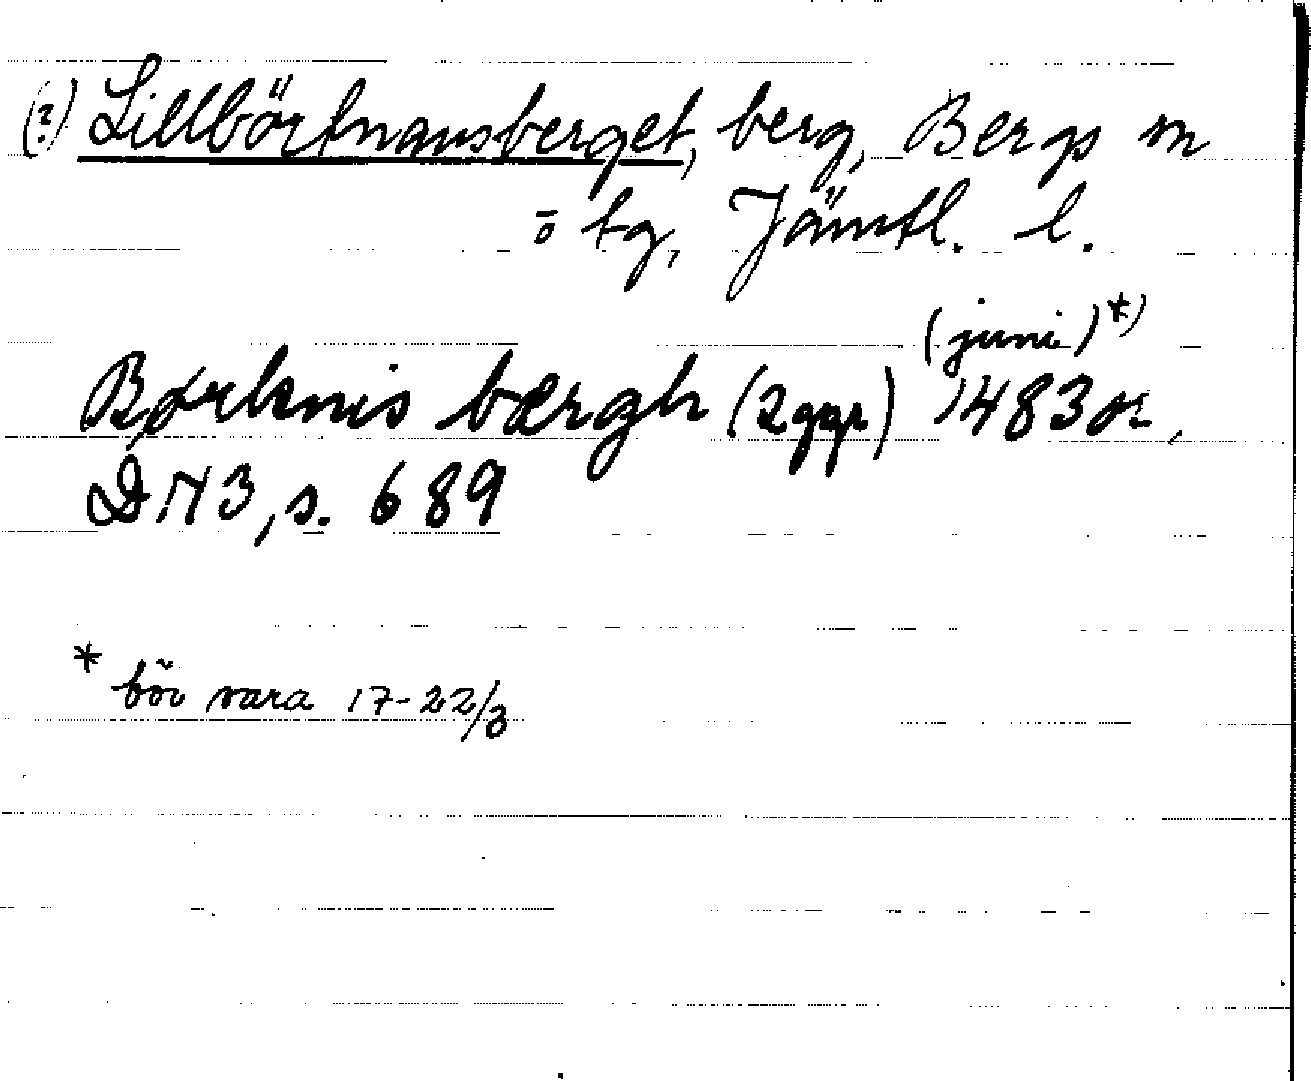 (?) Lillbörtnansberget, berg, Bergs sn
ō tg, Jämtl. l.
(juni)*)
Børknis bærgh (2 ggr) 1483 or.,
DN 3, s. 689
* bör vara 17-22/3